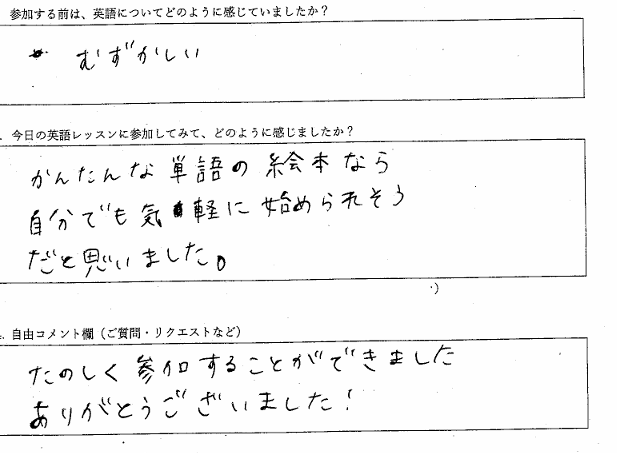 参加する前は、英語についてどのように感じていましたか？
むずかしい
. 今日の英語レッスンに参加してみて、どのように感じましたか？
かんたんな単語の絵本なら
自分でも気軽に始められそう
だと思いました。
. 自由コメント欄（ご質問・リクエストなど）
たのしく参加することができました
ありがとうございました！